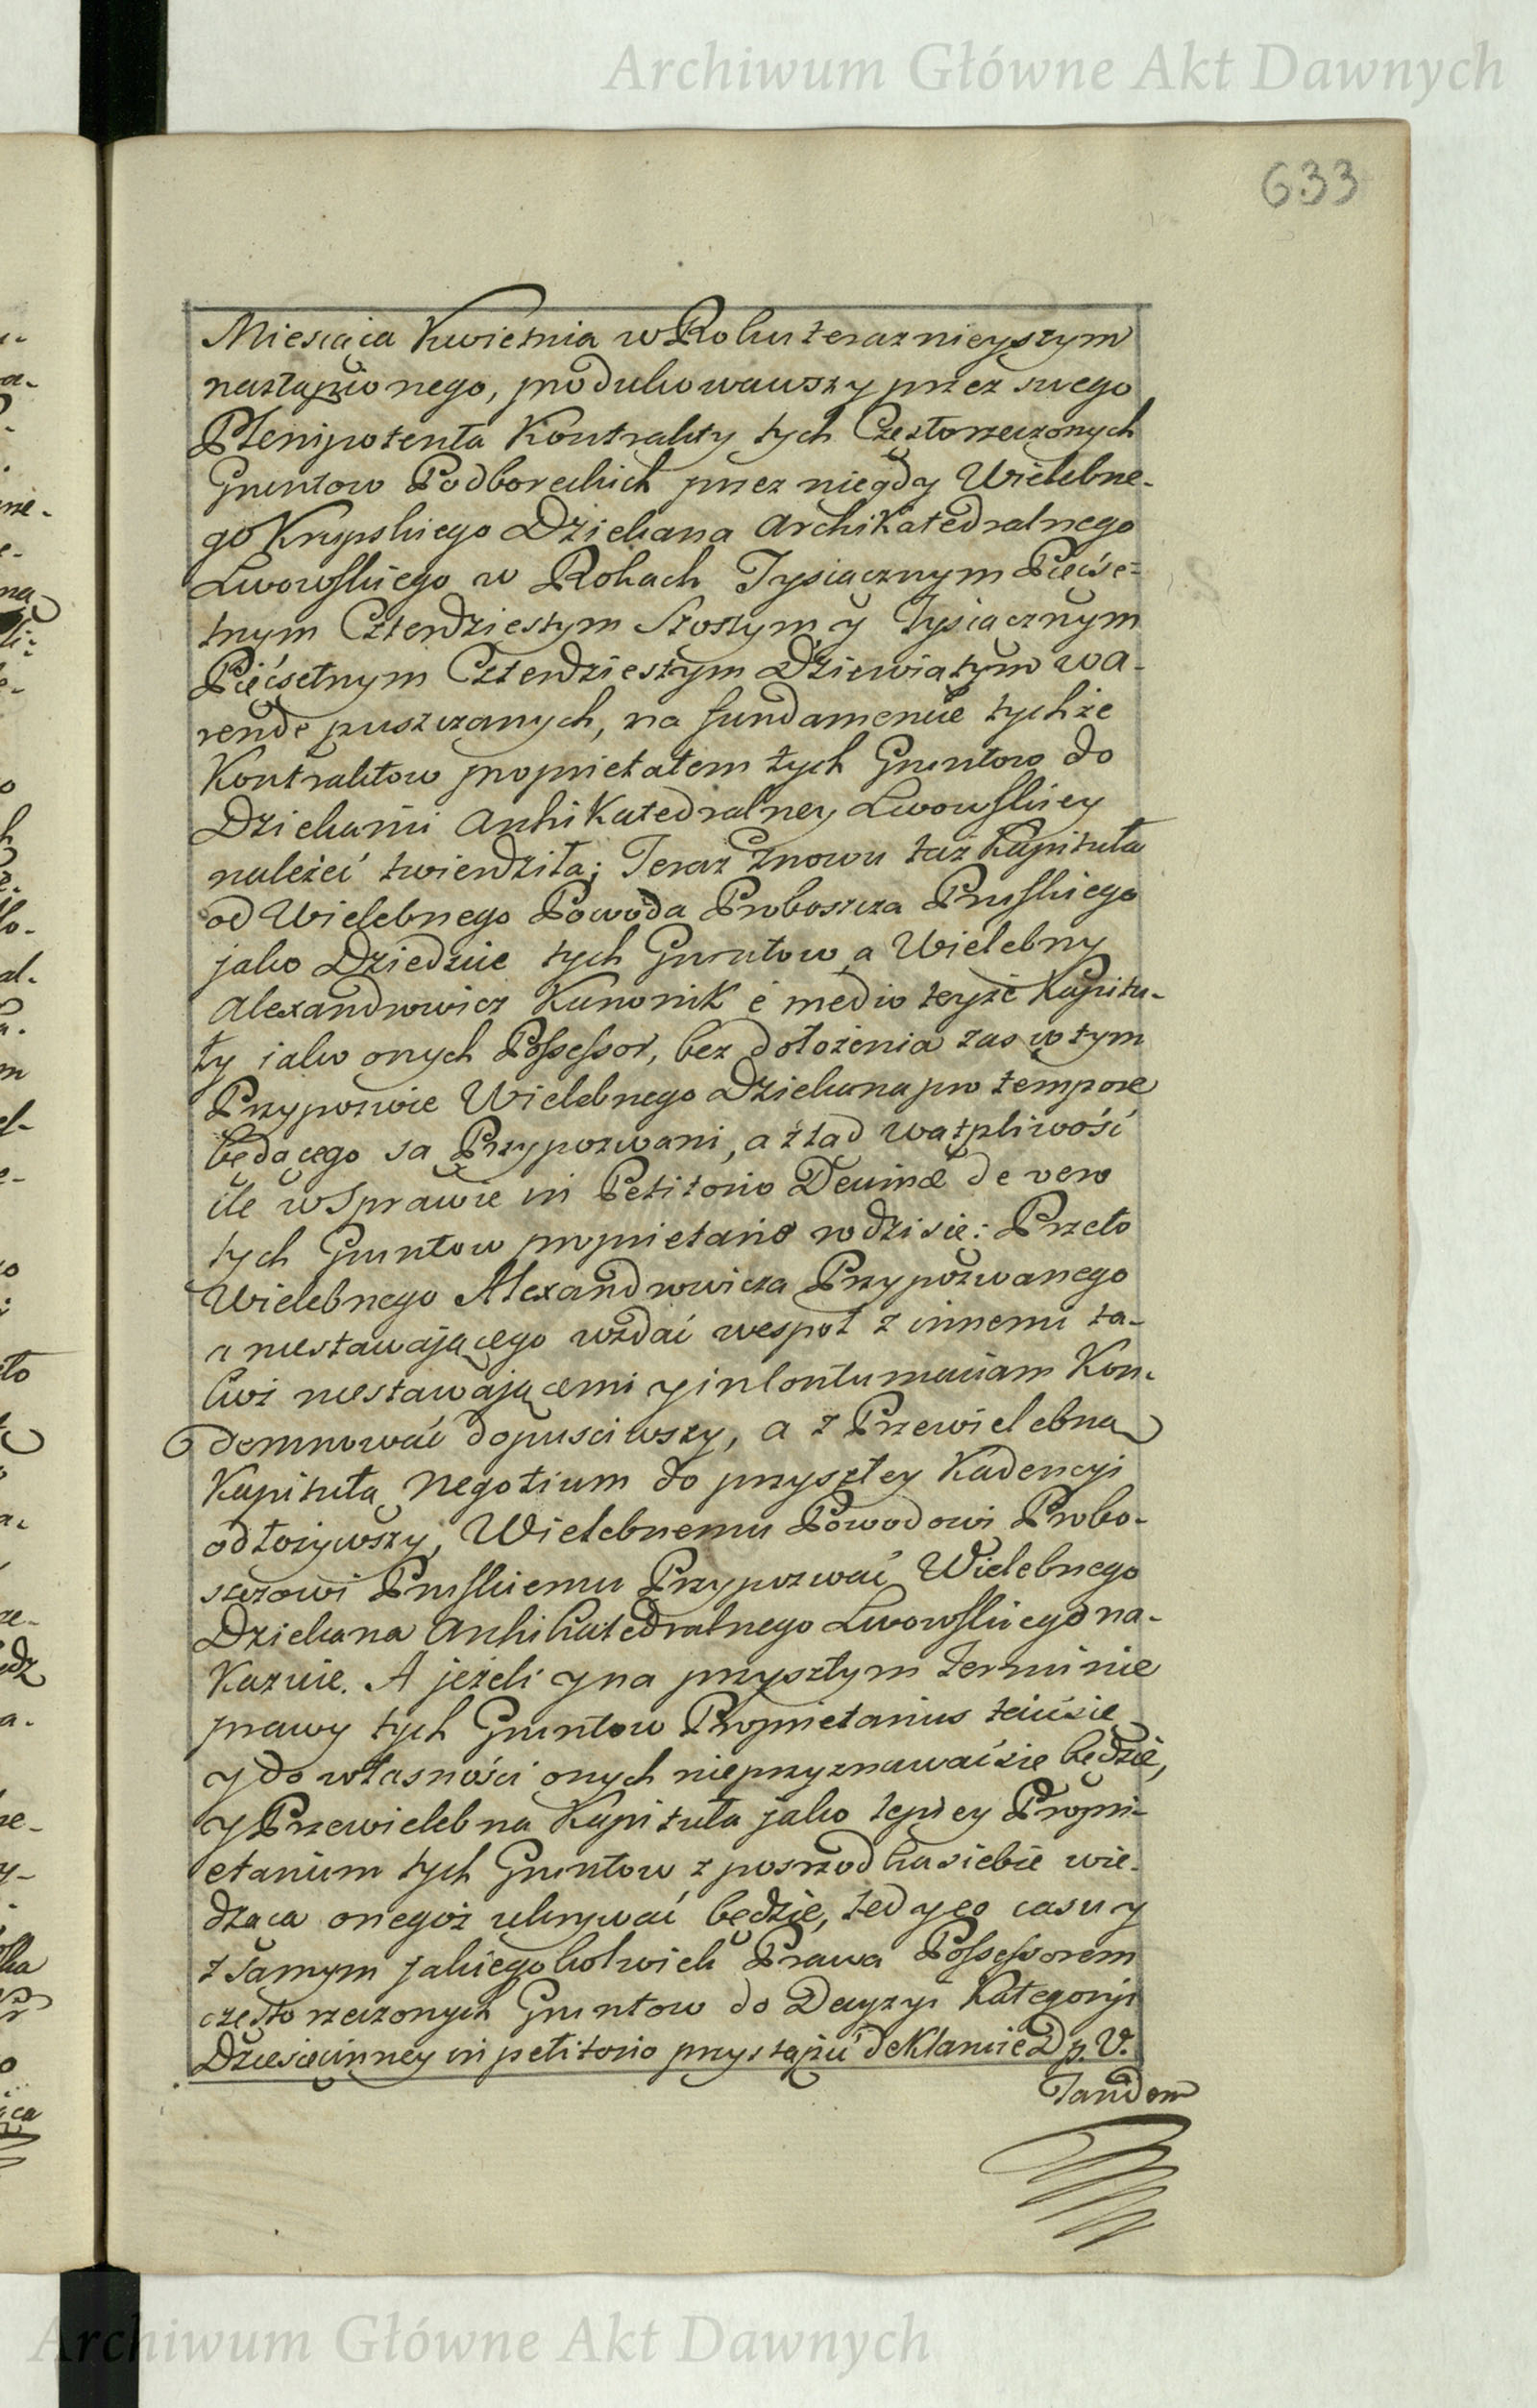 Archiwum Główne Akt Dawnych
633
Miesiąca Kwietnia w Roku teraznieyszym
nastąpionego, produkowawszy przez swego
Plenipotenta Kontrakty tych Częstorzeczonych
Gruntow Podboreckich przez niegdy Wielebne-
go Krupskiego Dziekana Archikatedralnego
Lwowskiego w Rokach Tysiącznym Pięćse-
tnym Czterdziestym Szostym, y Tysiącznym
Pięćsetnym Czterdziestym Dziewiątym w a-
rendę puszczanych, na fundamencie tychże
Kontraktow proprietatem tych Gruntow do
Dziekanii Archikatedralney Lwowskiey
należeć twierdziła; Teraz znowu taż Kapituła
od Wielebnego Powoda Proboszcza Pruskiego
jako Dziedzic tych Gruntow, a Wielebny
Alexandrowicz Kanonik é medio teyże Kapitu-
ły jako onych Possessor, bez dołożenia zas w tym
Przypozwie Wielebnego Dziekana pro tempore
będącego są Przypozwani, a ztąd wątpliwość
ile w Sprawie in Petitorio Decimæ de vero
tych Gruntow proprietario rodzi się: Przeto
Wielebnego Alexandrowicza Przypozwanego
a niestawającego wzdać wespoł z innemi ta-
kwż niestawającemi y in Contumaciam Kon-
demnować dopusciwszy, a z Przewielebną
Kapitułą Negotium do przyszłey Kadencyi
odłożywszy, Wielebnemu Powodowi Probo-
szczowi Pruskiemu Przypozwać Wielebnego
Dziekana Archikatedralnego Lwowskiego na-
kazuie. A jeżeli y na przyszłym Terminie
prawy tych Gruntow Proprietarius taić się
y do własności onych nieprzyznawać się będzie,
y Przewielebna Kapituła jako lepiey Propri-
etarium tych Gruntow z posrzodka siebie wie-
dząca onegoż ukrywać będzie, tedy eo casu y
z samym jakiegokolwiek Prawa Possessorem
często rzeczonych Gruntow do Decyzyi Kategoryi
Dziesięcinney in petitorio przystąpić deklaruie D. p. V.
Tandem
Archiwum Główne Akt Dawnych